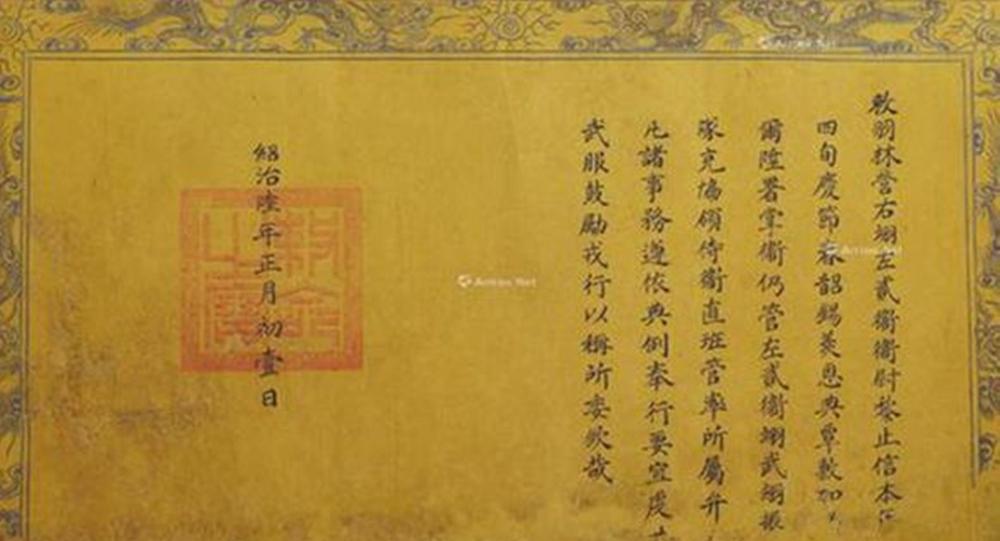 敕羽林營右翊左貳衛衛尉黎止信本
四旬慶節春韶錫羨恩典覃敷加
爾陞署掌衛仍管左貳衛翊武翊振
隊充協領侍衛直班管率所屬弁
凡諸事務遵依典例奉行要宜虔
武服鼓勵戎行以稱所委欽哉
紹治陸年正月初壹日
敕命之寶